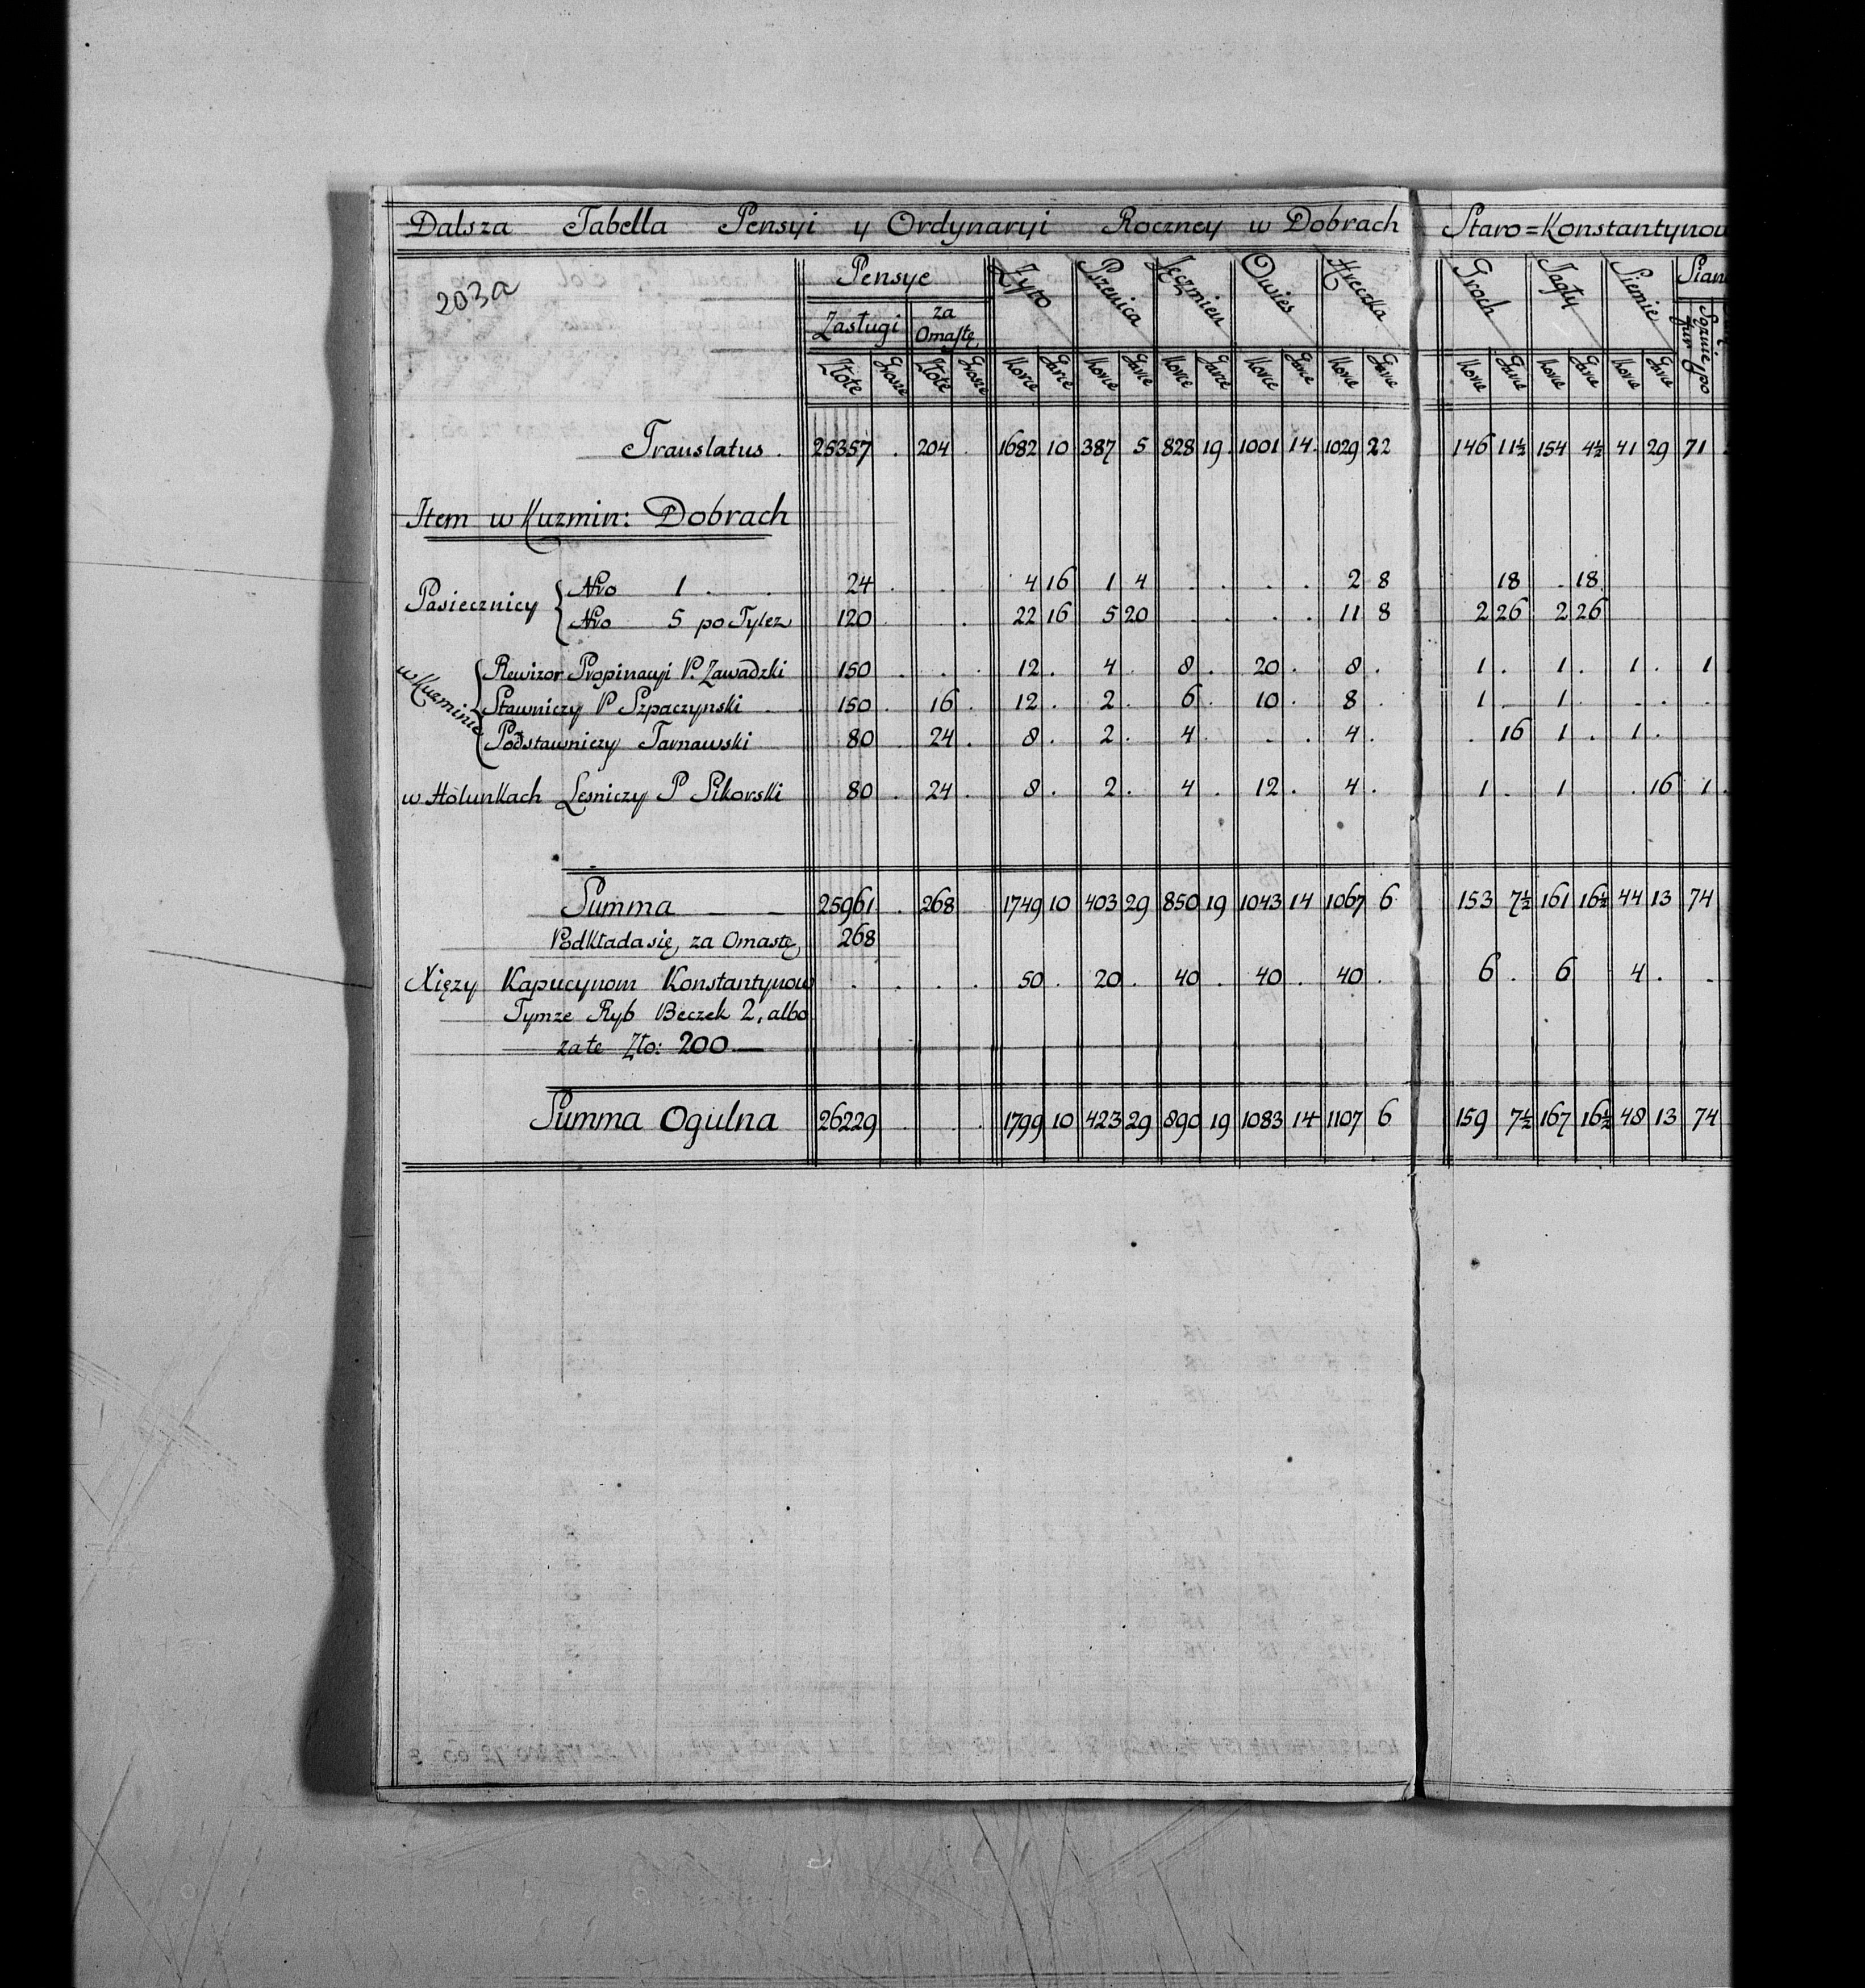 Dalsza Tabella Pensyi y Ordynaryi Roczney w Dobrach Staro=Konstantynow
203a
Pensye Żyto Pszenica Jęczmien Owies Hreczka Groch Jagły Siemie Siano
Zasługi za Omastę
Złote Grosze Złote Grosze Korce Garce Korce Garce Korce Garce Korce Garce Korce Garce Korce Garce Korce Garce Korce Garce
Translatus . 25357 . 204 . 1682 10 387 5 828 19 . 1001 14 . 1029 22 146 11½ 154 4½ 41 29 71
Item w Kuzmin: Dobrach
Pasiecznicy { Nro 1 . . 24 . . . 4 16 1 4 . . . . 2 8 18 . 18
Nro 5 po Tylez 120 . . . 22 16 5 20 . . . . 11 8 2 26 2 26
w Kuzminie { Rewizor Propinacyi P. Zawadzki 150 . . . 12 . 4 . 8 . 20 . 8 . 1 . 1 . 1 . 1
Stawniczy P Szpaczynski 150 . 16 . 12 . 2 . 6 . 10 . 8 . 1 . 1 . . . .
Podstawniczy Tarnawski 80 24 . 8 . 2 . 4 . . . 4 . . 16 1 . 1 .
w Holunkach Lesniczy P Sikorski 80 . 24 . 8 . 2 . 4 . 12 . 4 . 1 . 1 . 16 1 .
Summa 25961 . 268 1749 10 403 29 850 19 1043 14 1067 6 153 7½ 161 16½ 44 13 74
Podkłada się, za Omastę, 268
Xięzy Kapucynom Konstantynow . . . . 50 . 20 . 40 . 40 . 40 . 6 . 6 4 . .
Tymze Ryb Beczek 2, albo
za te Zło: 200 —
Summa Ogulna 26229 . . . 1799 10 423 29 890 19 1083 14 1107 6 159 7½ 167 16½ 48 13 74